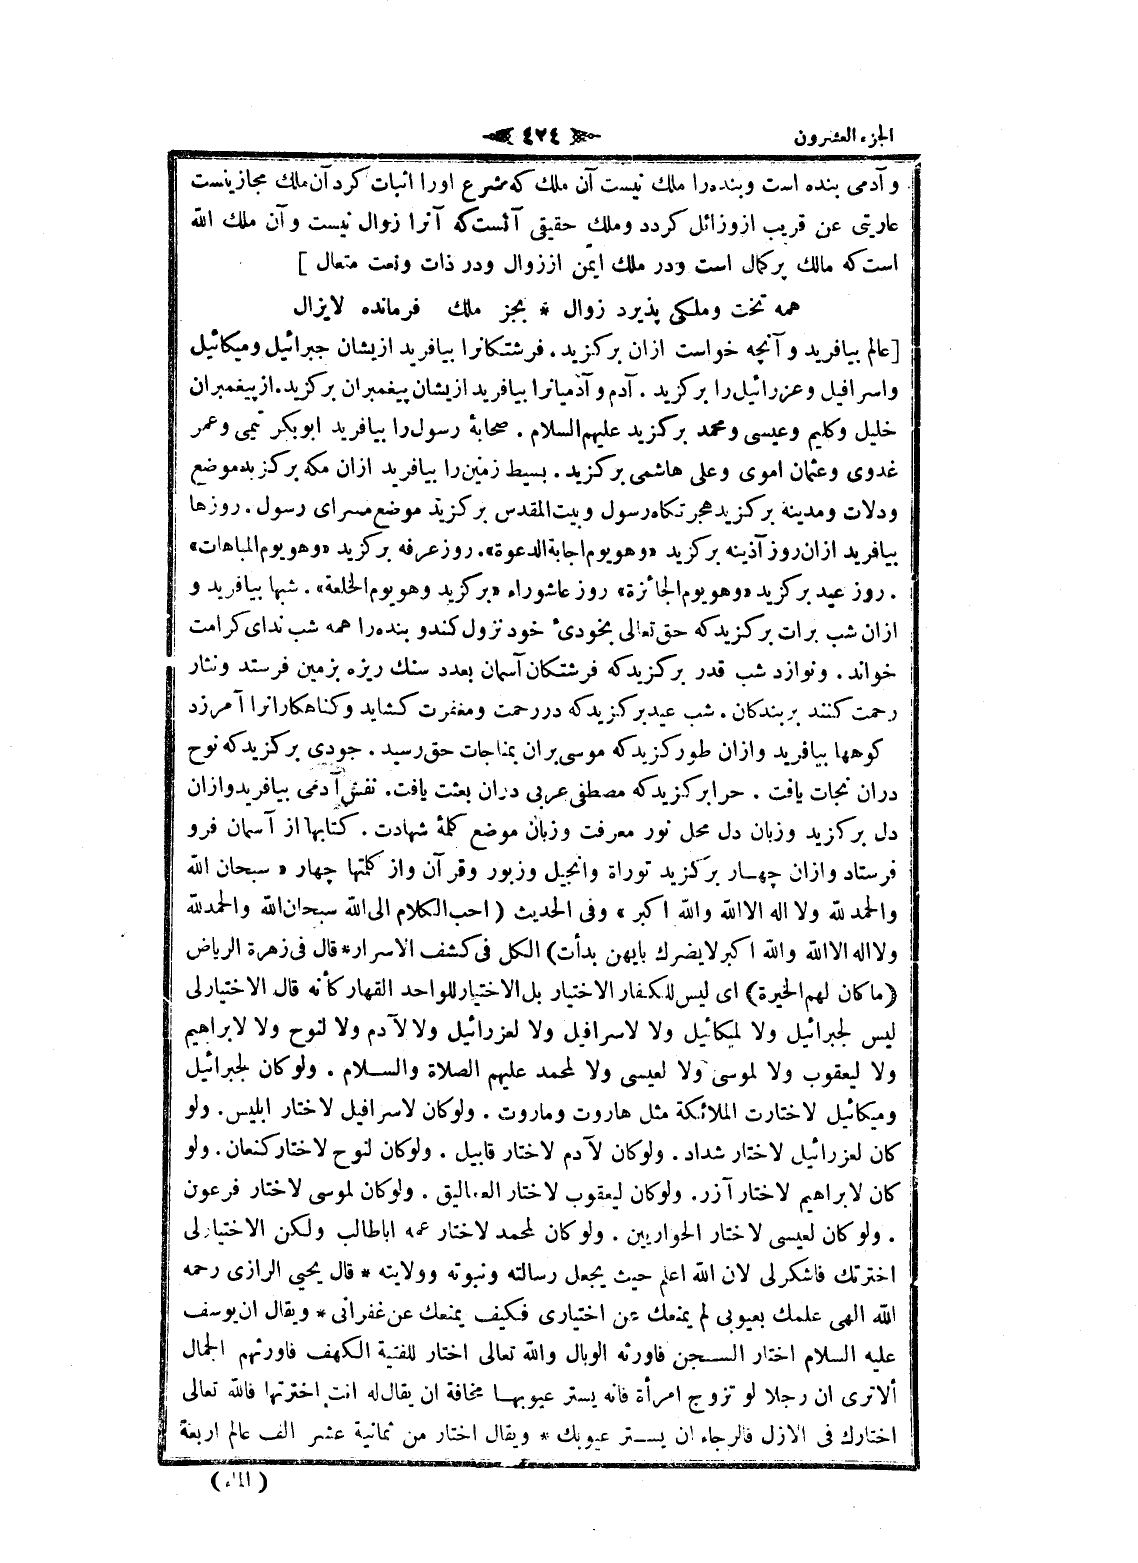 الجزء العشرون ٤٢٤
و آدمی بنده است و بنده‌را ملك نیست آن ملك كه شرع اورا اثبات كرد آن ملك مجازیست
عاریتی عن قریب ازوزائل كردد وملك حقیقی آنست كه آنرا زوال نیست و آن ملك الله
است كه مالك پركمال است ودر ملك ایمن اززوال ودر ذات ونعت متعال ]
همه تخت وملكی پذیرد زوال * بجز ملك فرمانده لایزال
[عالم بیافرید و آنچه خواست ازان بركزید. فرشتكانرا بیافرید ازیشان جبرائیل ومیكائیل
واسرافیل وعزرائیل‌را بركزید . آدم و آدمیانرا بیافرید ازیشان پیغمبران بركزید. ازپیغمبران
خلیل وكلیم وعیسی ومحمد بركزید علیهم السلام . صحابهٔ رسول‌را بیافرید ابوبكر تیمی وعمر
غدوی وعثمان اموی وعلی هاشمی بركزید . بسیط زمین‌را بیافرید ازان مكه بركزید موضع
ودلات ومدینه بركزید هجرتكاه رسول وبیت المقدس بركزید موضع مسرای رسول . روزها
بیافرید ازان روز آذینه بركزید «وهو یوم اجابة الدعوة». روز عرفه بركزید «وهو یوم المباهات»
. روز عید بركزید «وهو یوم الجائزة» روز عاشوراء «بركزید وهو یوم الخلعة» . شبها بیافرید و
ازان شب برات بركزید كه حق تعالی بخودیٔ خود نزول كند و بنده‌را همه شب ندای كرامت
خواند . ونوازد شب قدر بركزید كه فرشتكان آسمان بعدد سنك ریزه بزمین فرستد ونثار
رحمت كنند بربندكان . شب عید بركزید كه دررحمت ومغفرت كشاید وكناهكارانرا آمرزد
كوهها بیافرید وازان طور كزید كه موسی بران بمناجات حق رسید . جودی بركزید كه نوح
دران نجات یافت . حرا بركزید كه مصطفی عربی دران بعثت یافت. نفس آدمی بیافرید وازان
دل بركزید وزبان دل محل نور معرفت وزبان موضع كلمهٔ شهادت . كتابها از آسمان فرو
فرستاد وازان چهار بركزید توراة وانجیل وزبور وقرآن واز كلمتها چهار « سبحان الله
والحمد لله ولا اله الا الله والله اكبر » وفی الحدیث ( احب الكلام الى الله سبحان الله والحمد لله
ولا اله الا الله والله اكبر لا يضرك بأيهن بدأت) الكل فى كشف الاسرار * قال فى زهرة الرياض
(ما كان لهم الخيرة) اى ليس للكفار الاختيار بل الاختيار للواحد القهار كأنه قال الاختيار لى
ليس لجبرائيل ولا لميكائيل ولا لاسرافيل ولا لعزرائيل ولا لآدم ولا لنوح ولا لابراهيم
ولا ليعقوب ولا لموسى ولا لعيسى ولا لمحمد عليهم الصلاة والسلام . ولو كان لجبرائيل
وميكائيل لاختارت الملائكة مثل هاروت وماروت . ولو كان لاسرافيل لاختار ابليس. ولو
كان لعزرائيل لاختار شداد . ولو كان لآدم لاختار قابيل . ولو كان لنوح لاختار كنعان . ولو
كان لابراهيم لاختار آزر. ولو كان ليعقوب لاختار العماليق . ولو كان لموسى لاختار فرعون
. ولو كان لعيسى لاختار الحواريين . ولو كان لمحمد لاختار عمه اباطالب ولكن الاختيار لى
اخترتك فاشكر لى لان الله اعلم حيث يجعل رسالته ونبوته وولايته * قال يحيى الرازى رحمه
الله الهى علمك بعيوبى لم يمنعك عن اختيارى فكيف يمنعك عن غفرانى * ويقال ان يوسف
عليه السلام اختار السجن فاورثه الوبال والله تعالى اختار للفتية الكهف فاورثهم الجمال
ألا ترى ان رجلا لو تزوج امرأة فانه يستر عيوبها مخافة ان يقال له انت اخترتها فالله تعالى
اختارك فى الازل فالرجاء ان يستر عيوبك * ويقال اختار من ثمانية عشر الف عالم اربعة
( الماء )